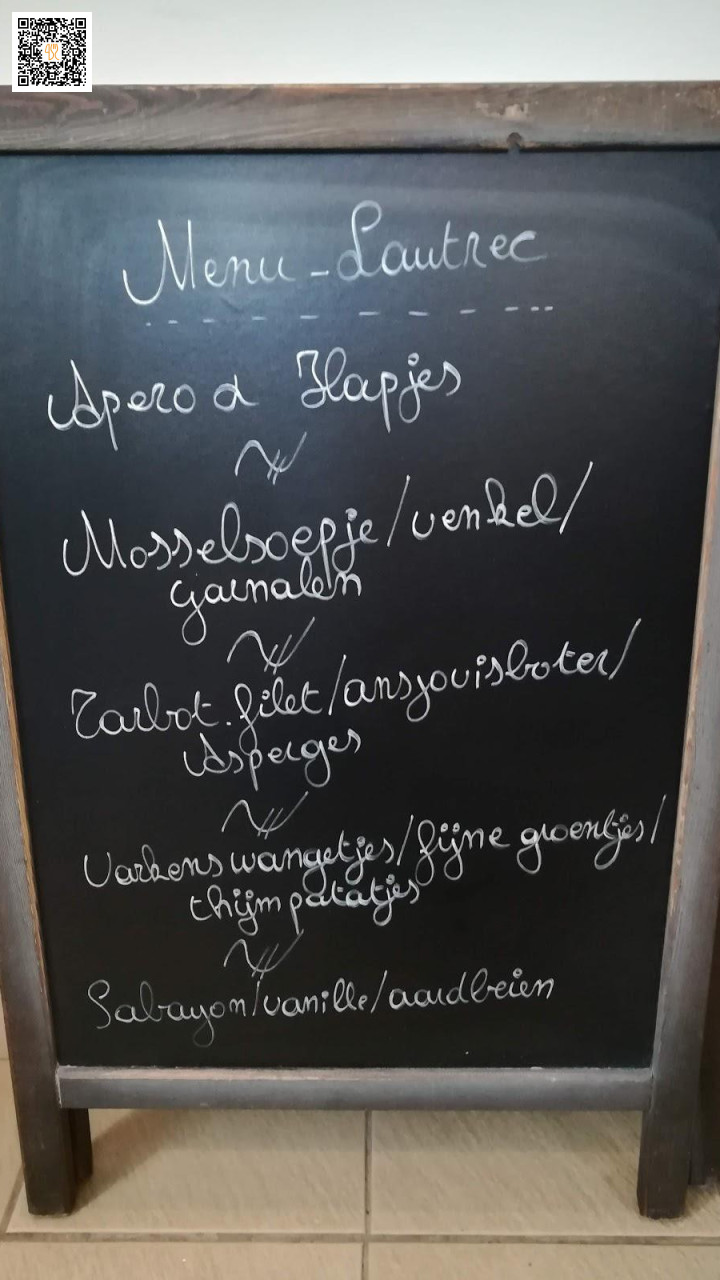 Menu - Lautrec
Apero & Hapjes
Mosselsoepje/venkel/
garnalen
Tarbot.filet/ansjovisboter/
Asperges
Varkenswangetjes/fijne groentjes/
thijmpatatjes
Sabayon/vanille/aardbeien